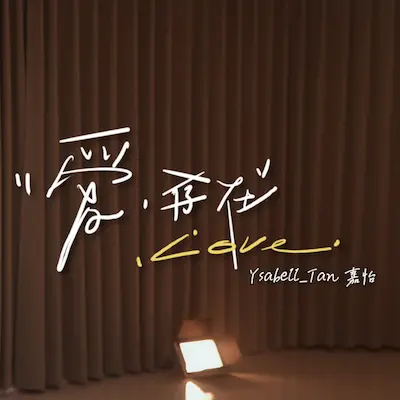 "爱,存在"
.Love.
Ysabell_Tan 嘉怡